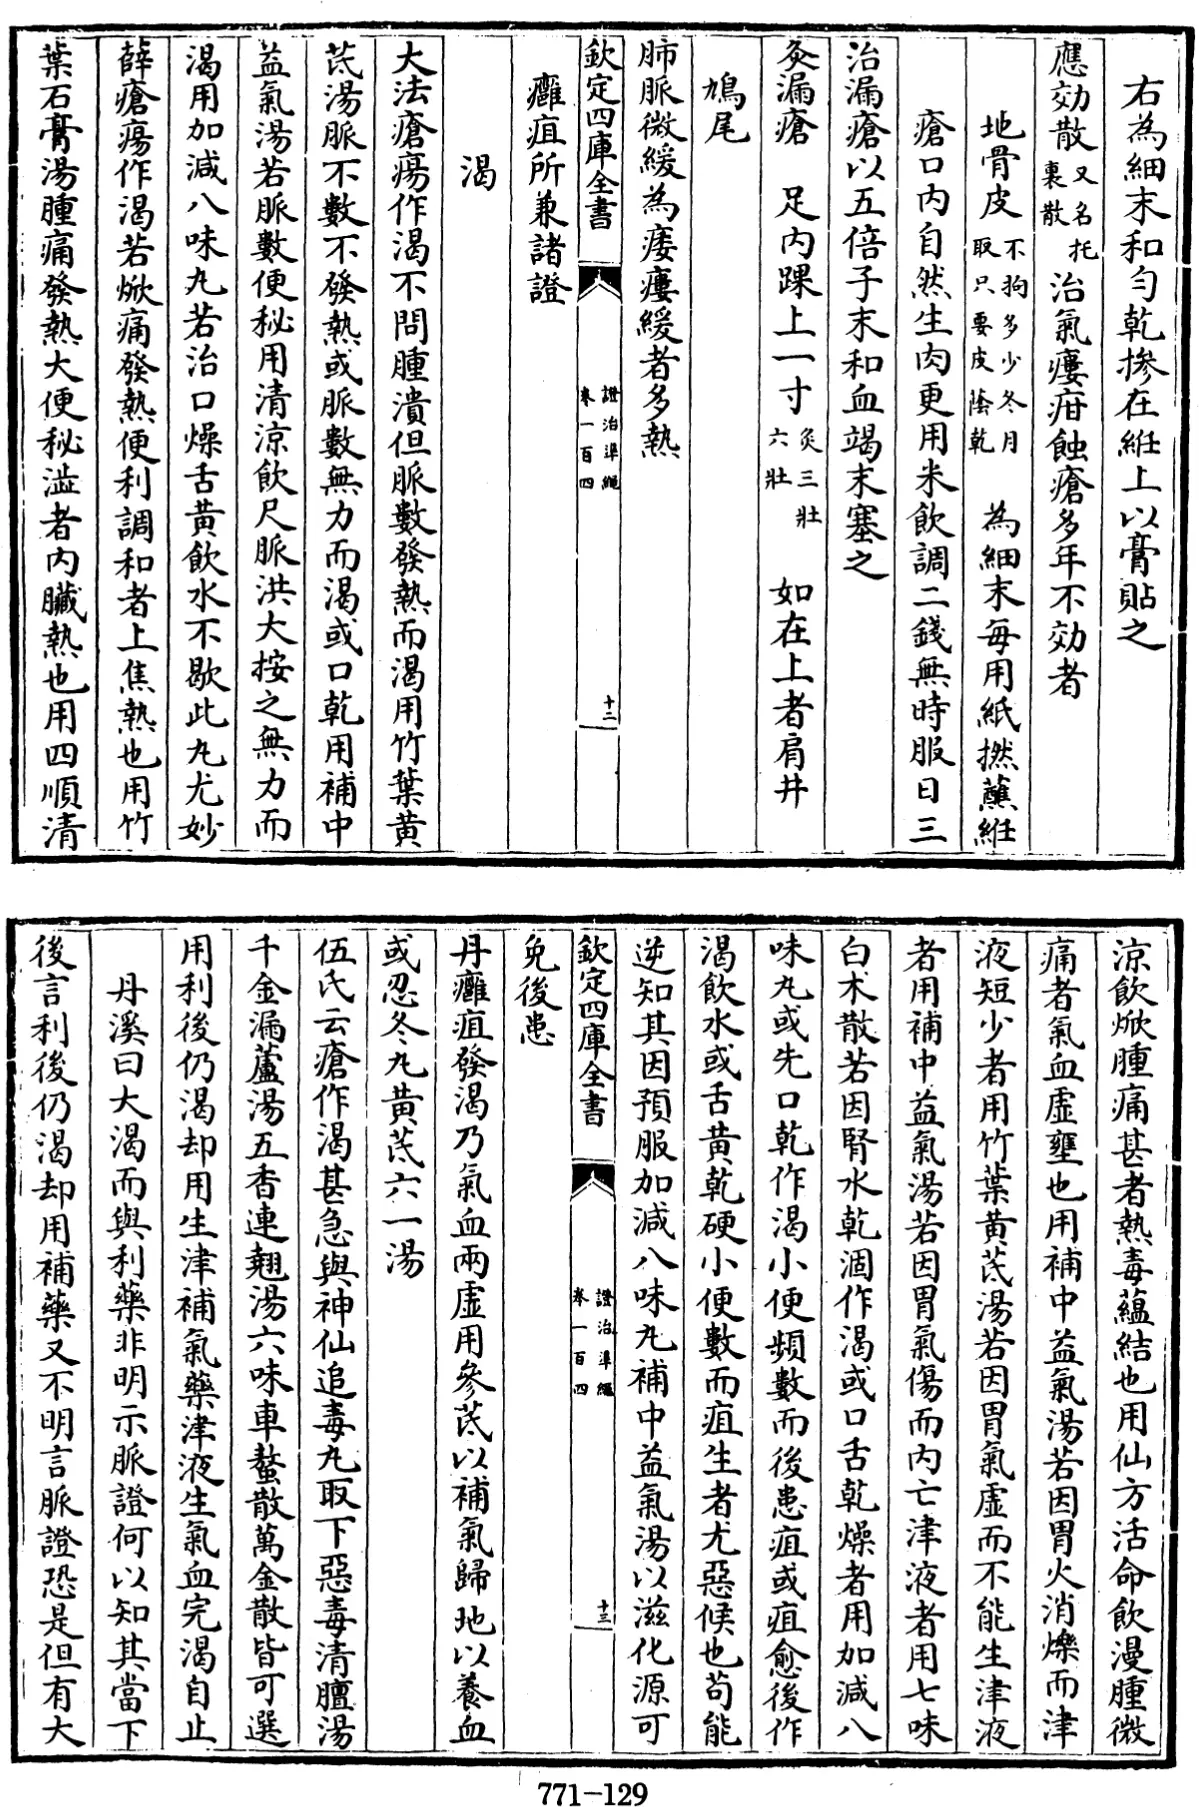 右為細末和勻乾摻在紝上以膏貼之
應効散又名托裏散治氣瘻疳蝕瘡多年不効者
地骨皮不拘多少冬月取只要皮陰乾為細末每用紙撚蘸紝
瘡口内自然生肉更用米飲調二錢無時服日三
治漏瘡以五倍子末和血竭末塞之
灸漏瘡　足内踝上一寸灸三壯六壯　如在上者肩井
鳩尾
肺脈微緩為痿瘻緩者多熱
欽定四庫全書
證治準繩
卷一百四
十二
癰疽所兼諸證
渴
大法瘡瘍作渴不問腫潰但脈數發熱而渴用竹葉黄
芪湯脈不數不發熱或脈數無力而渴或口乾用補中
益氣湯若脈數便秘用清涼飲尺脈洪大按之無力而
渴用加減八味丸若治口燥舌黄飲水不歇此丸尤妙
薛瘡瘍作渴若焮痛發熱便利調和者上焦熱也用竹
葉石膏湯腫痛發熱大便秘澁者内臟熱也用四順清
涼飲焮腫痛甚者熱毒藴結也用仙方活命飲漫腫微
痛者氣血虛壅也用補中益氣湯若因胃火消爍而津
液短少者用竹葉黄芪湯若因胃氣虛而不能生津液
者用補中益氣湯若因胃氣傷而内亡津液者用七味
白术散若因腎水乾涸作渴或口舌乾燥者用加減八
味丸或先口乾作渴小便頻數而後患疽或疽愈後作
渴飲水或舌黄乾硬小便數而疽生者尤惡候也苟能
逆知其因預服加減八味丸補中益氣湯以滋化源可
欽定四庫全書
證治準繩
卷一百四
十三
免後患
丹癰疽發渴乃氣血兩虛用參芪以補氣歸地以養血
或忍冬丸黄芪六一湯
伍氏云瘡作渴甚急與神仙追毒丸取下惡毒清膻湯
千金漏蘆湯五香連翹湯六味車螯散萬金散皆可選
用利後仍渴却用生津補氣藥津液生氣血完渴自止
丹溪曰大渴而與利藥非明示脈證何以知其當下
後言利後仍渴却用補藥又不明言脈證恐是但有大
771-129